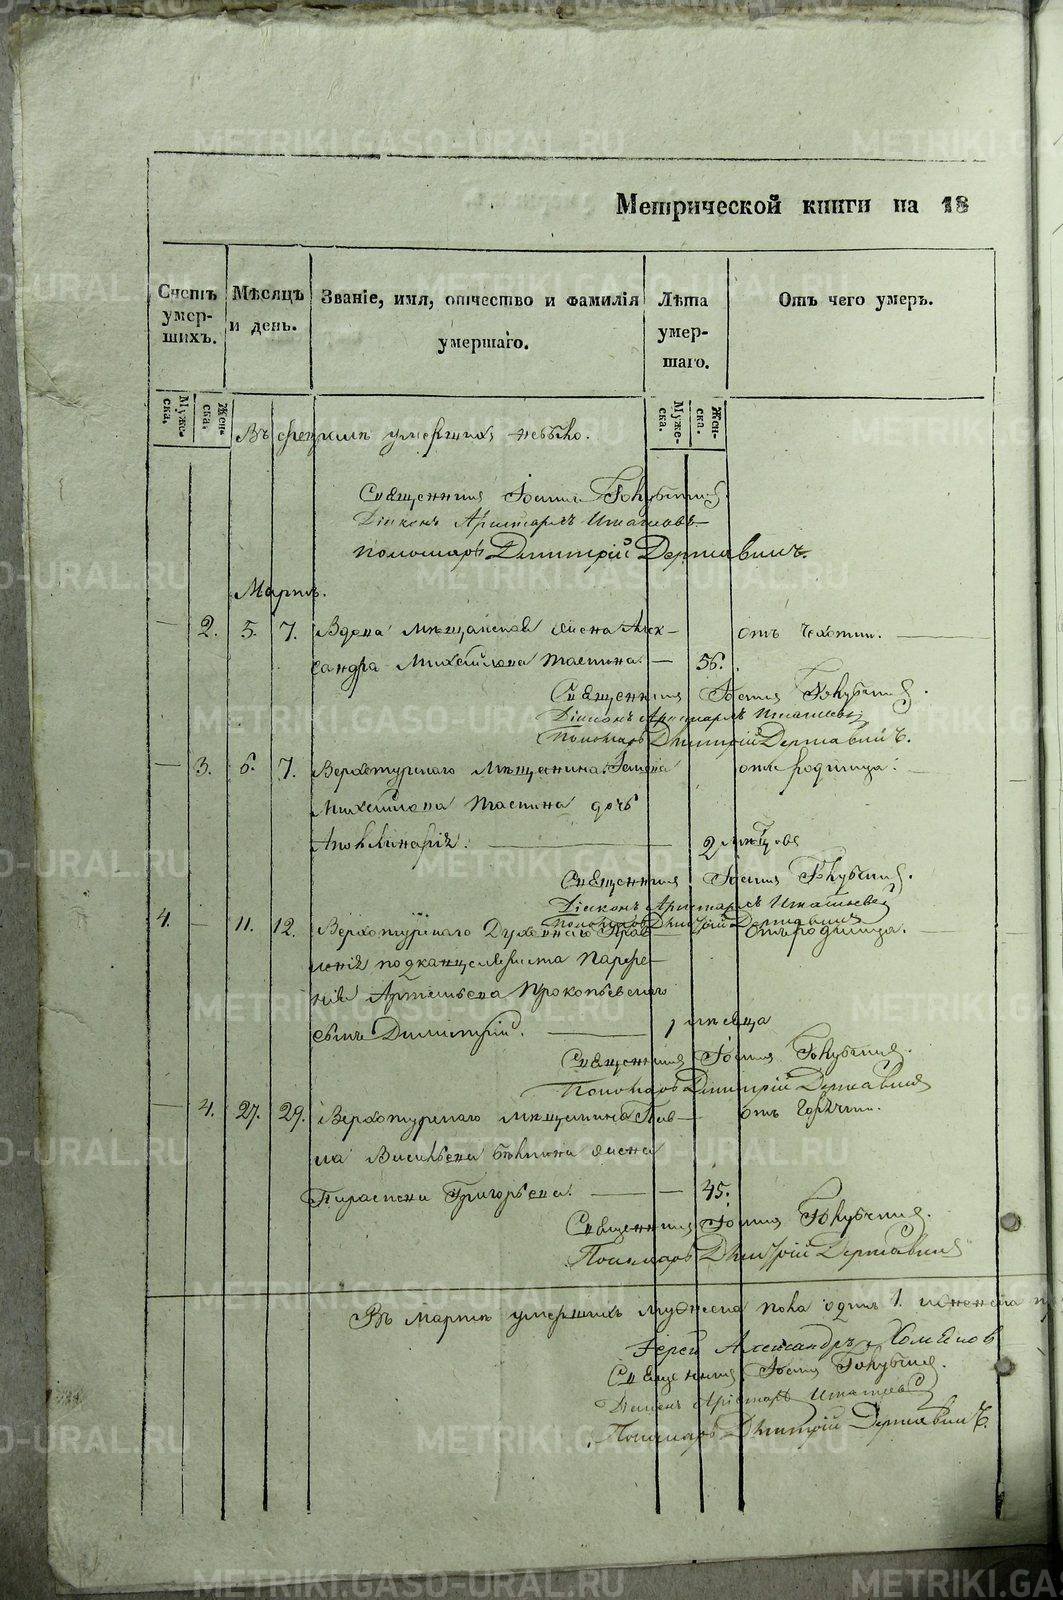 Метрической книги на 18
Счетъ умер-шихъ.
Мѣсяцъ и день.
Званіе, имя, отчество и фамилія умершаго.
Лѣта умер-шаго.
Отъ чего умеръ.
Муже-ска.
Жен-ска.
Муже-ска.
Жен-ска.
Въ февралѣ умершихъ небыло.
Священникъ Іоаннъ
Діаконъ Аристархъ Игнатьевъ
Пономарь Дмитрій Державинъ.
Мартъ.
2. 5. 7. Вдова мѣщанская жена Алек-
отъ чахотки.
сандра Михайлова 56.
Священникъ Іоаннъ
Діаконъ Аристархъ Игнатьевъ
Пономарь Дмитрій Державинъ.
3. 6. 7. Верхотурскаго мѣщанина
отъ родимца.
Михайлова дочь
Аполлинарія. 2
Священникъ Іоаннъ
Діаконъ Аристархъ Игнатьевъ
Пономарь Дмитрій Державинъ
4. 11. 12. Верхотурскаго Духовнаго Прав-
отъ родимца.
ленія подканцеляриста Парфе-
нія Артемьева Прокопьевскаго
сынъ Димитрій. 1 мѣсяца
Священникъ Іоаннъ
Пономарь Дмитрій Державинъ
4. 27. 29. Верхотурскаго мѣщанина Пав-
отъ горячки.
ла Васильева жена
Параскева Григорьева. 45.
Священникъ Іоаннъ
Пономарь Дмитрій Державинъ
Въ мартѣ умершихъ мужеска пола одинъ 1. и женска
Іерей Александръ
Священникъ Іоаннъ
Діаконъ Аристархъ Игнатьевъ
Пономарь Дмитрій Державинъ.
METRIKI.GASO-URAL.RU